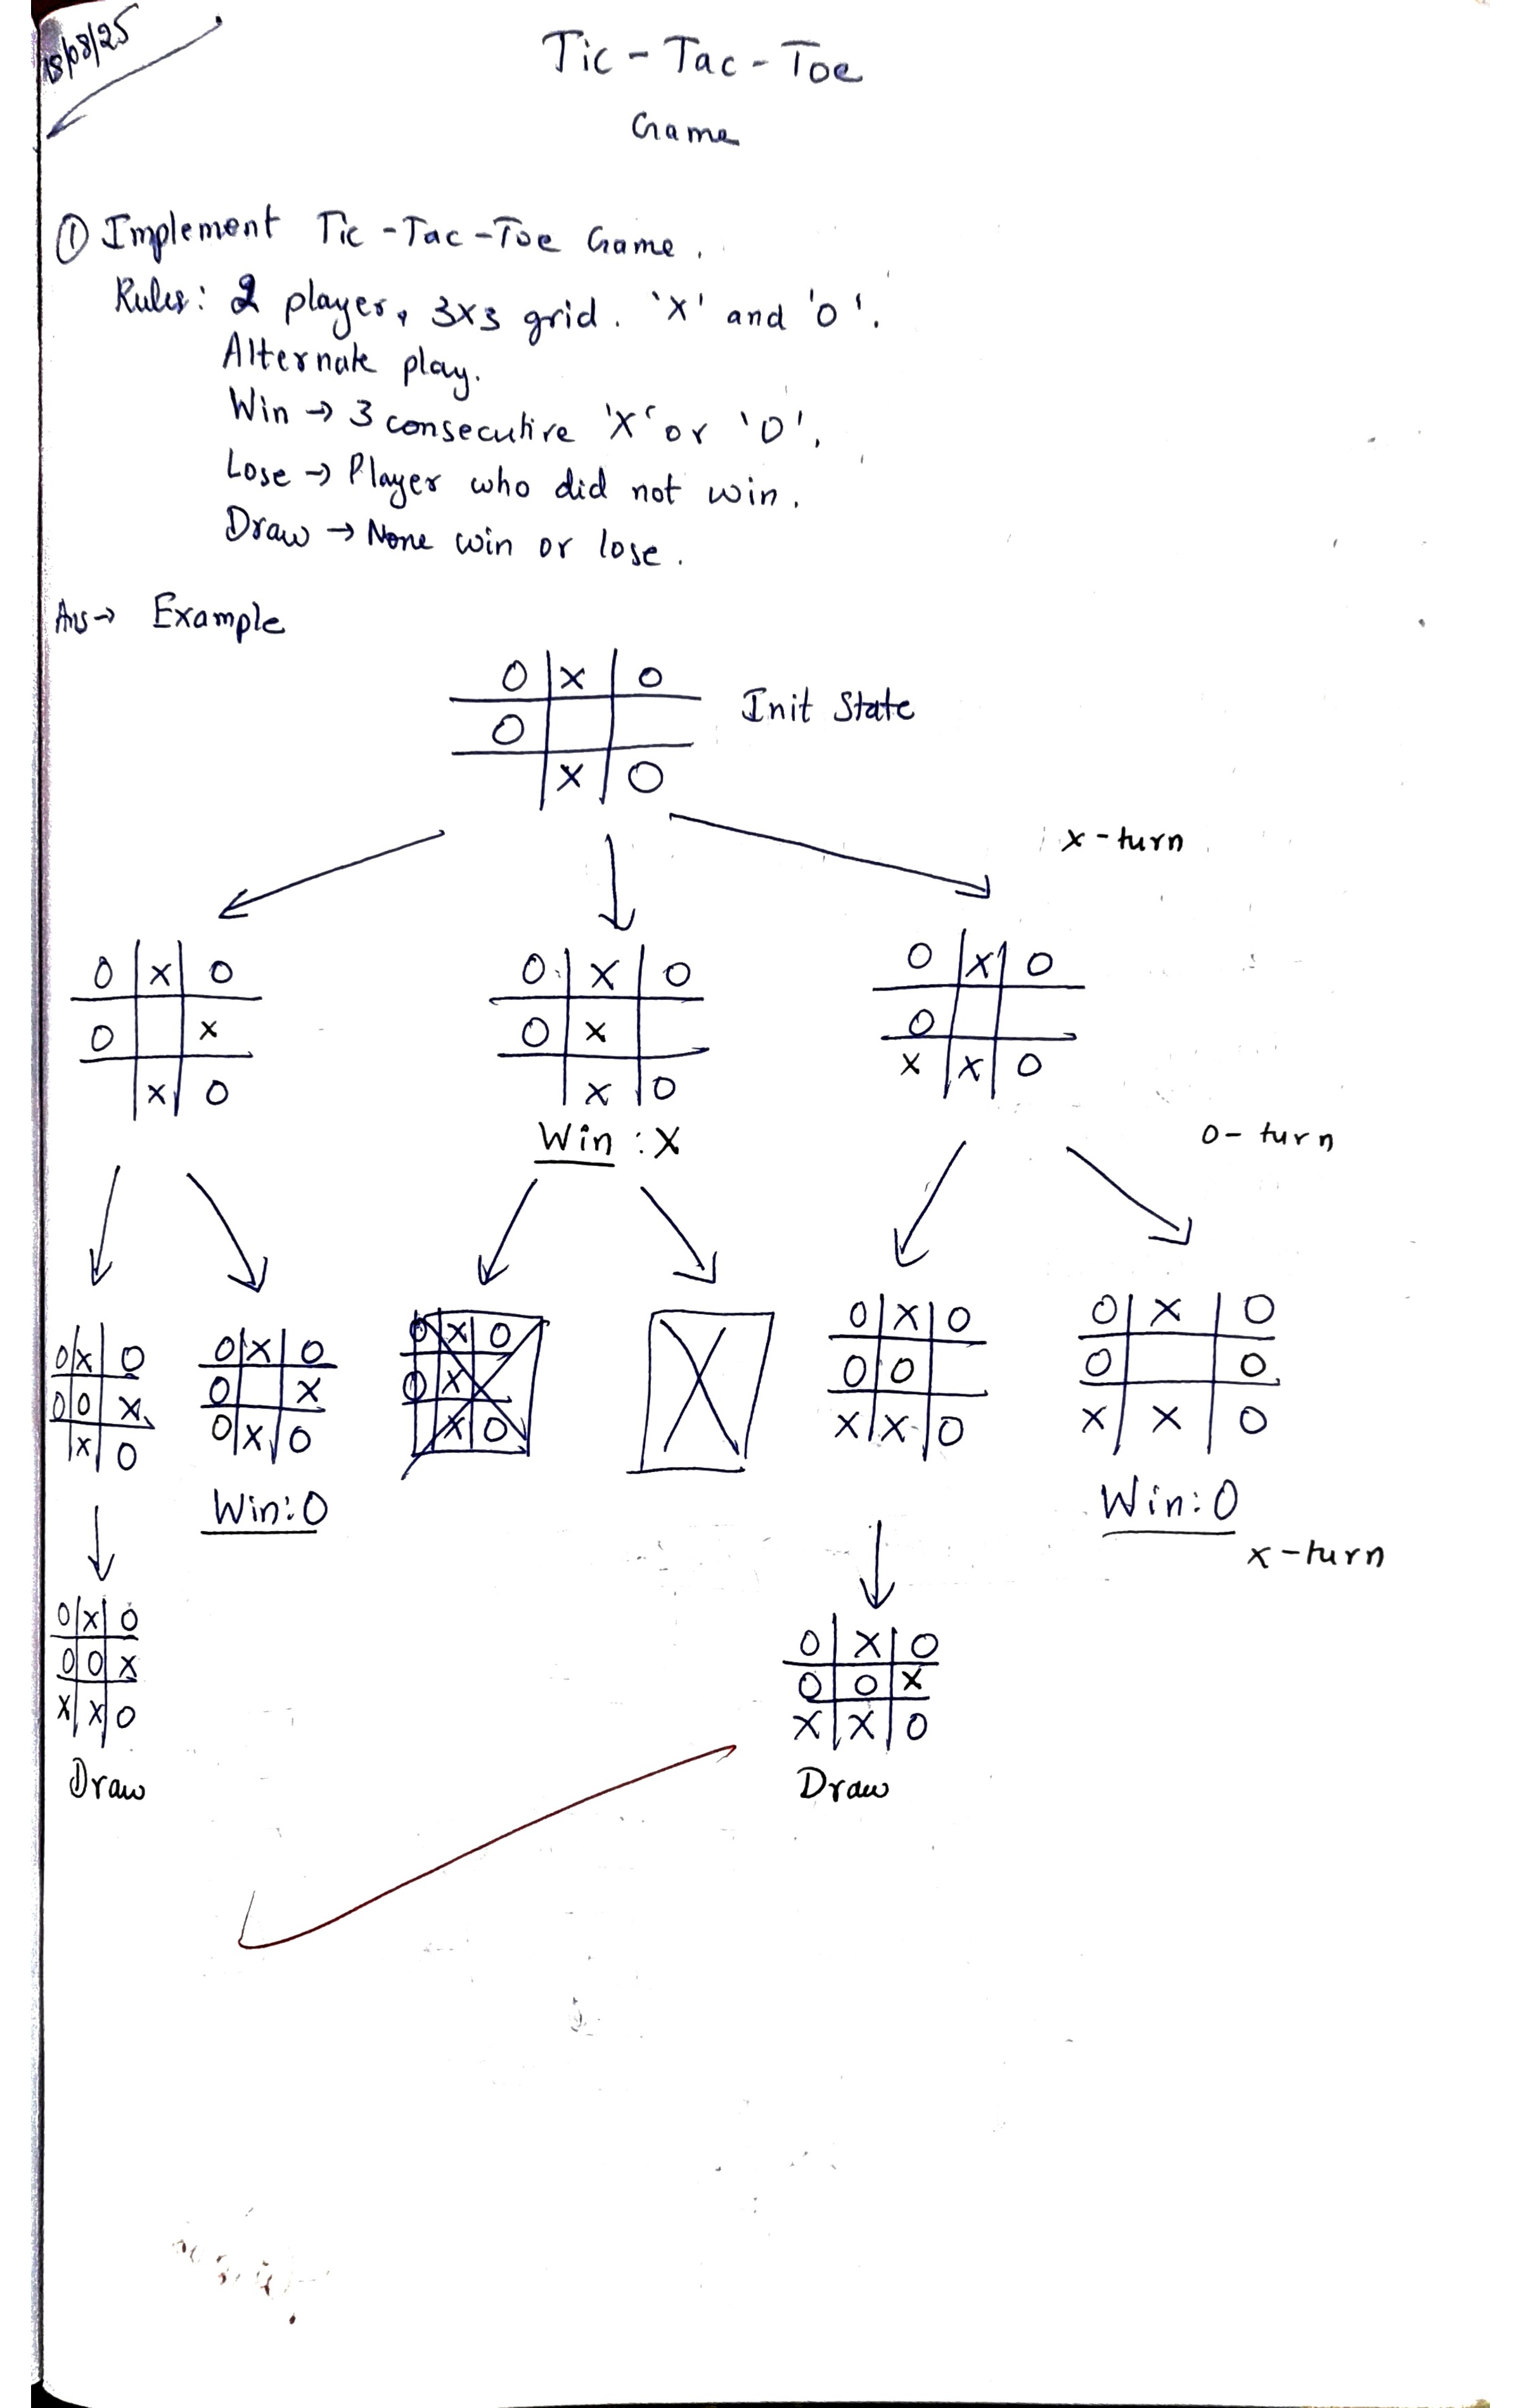 18/08/25
Tic-Tac-Toe
Game
① Implement Tic-Tac-Toe Game.
Rules: 2 player, 3x3 grid. 'X' and 'O'.
Alternate play.
Win → 3 consecutive 'X' or 'O'.
Lose → Player who did not win.
Draw → None win or lose.
Ans → Example
O | X | O
O | | 
 | X | O
Init State
x-turn
O | X | O
O | | X
 | X | O
O | X | O
O | X | 
 | X | O
Win : X
O | X | O
O | | 
X | X | O
O-turn
O | X | O
O | O | X
 | X | O
O | X | O
O | | X
O | X | O
Win: O
O | X | O
O | X | 
 | X | O
X
O | X | O
O | O | 
X | X | O
O | X | O
O | | O
X | X | O
Win: O
x-turn
O | X | O
O | O | X
X | X | O
Draw
O | X | O
O | O | X
X | X | O
Draw